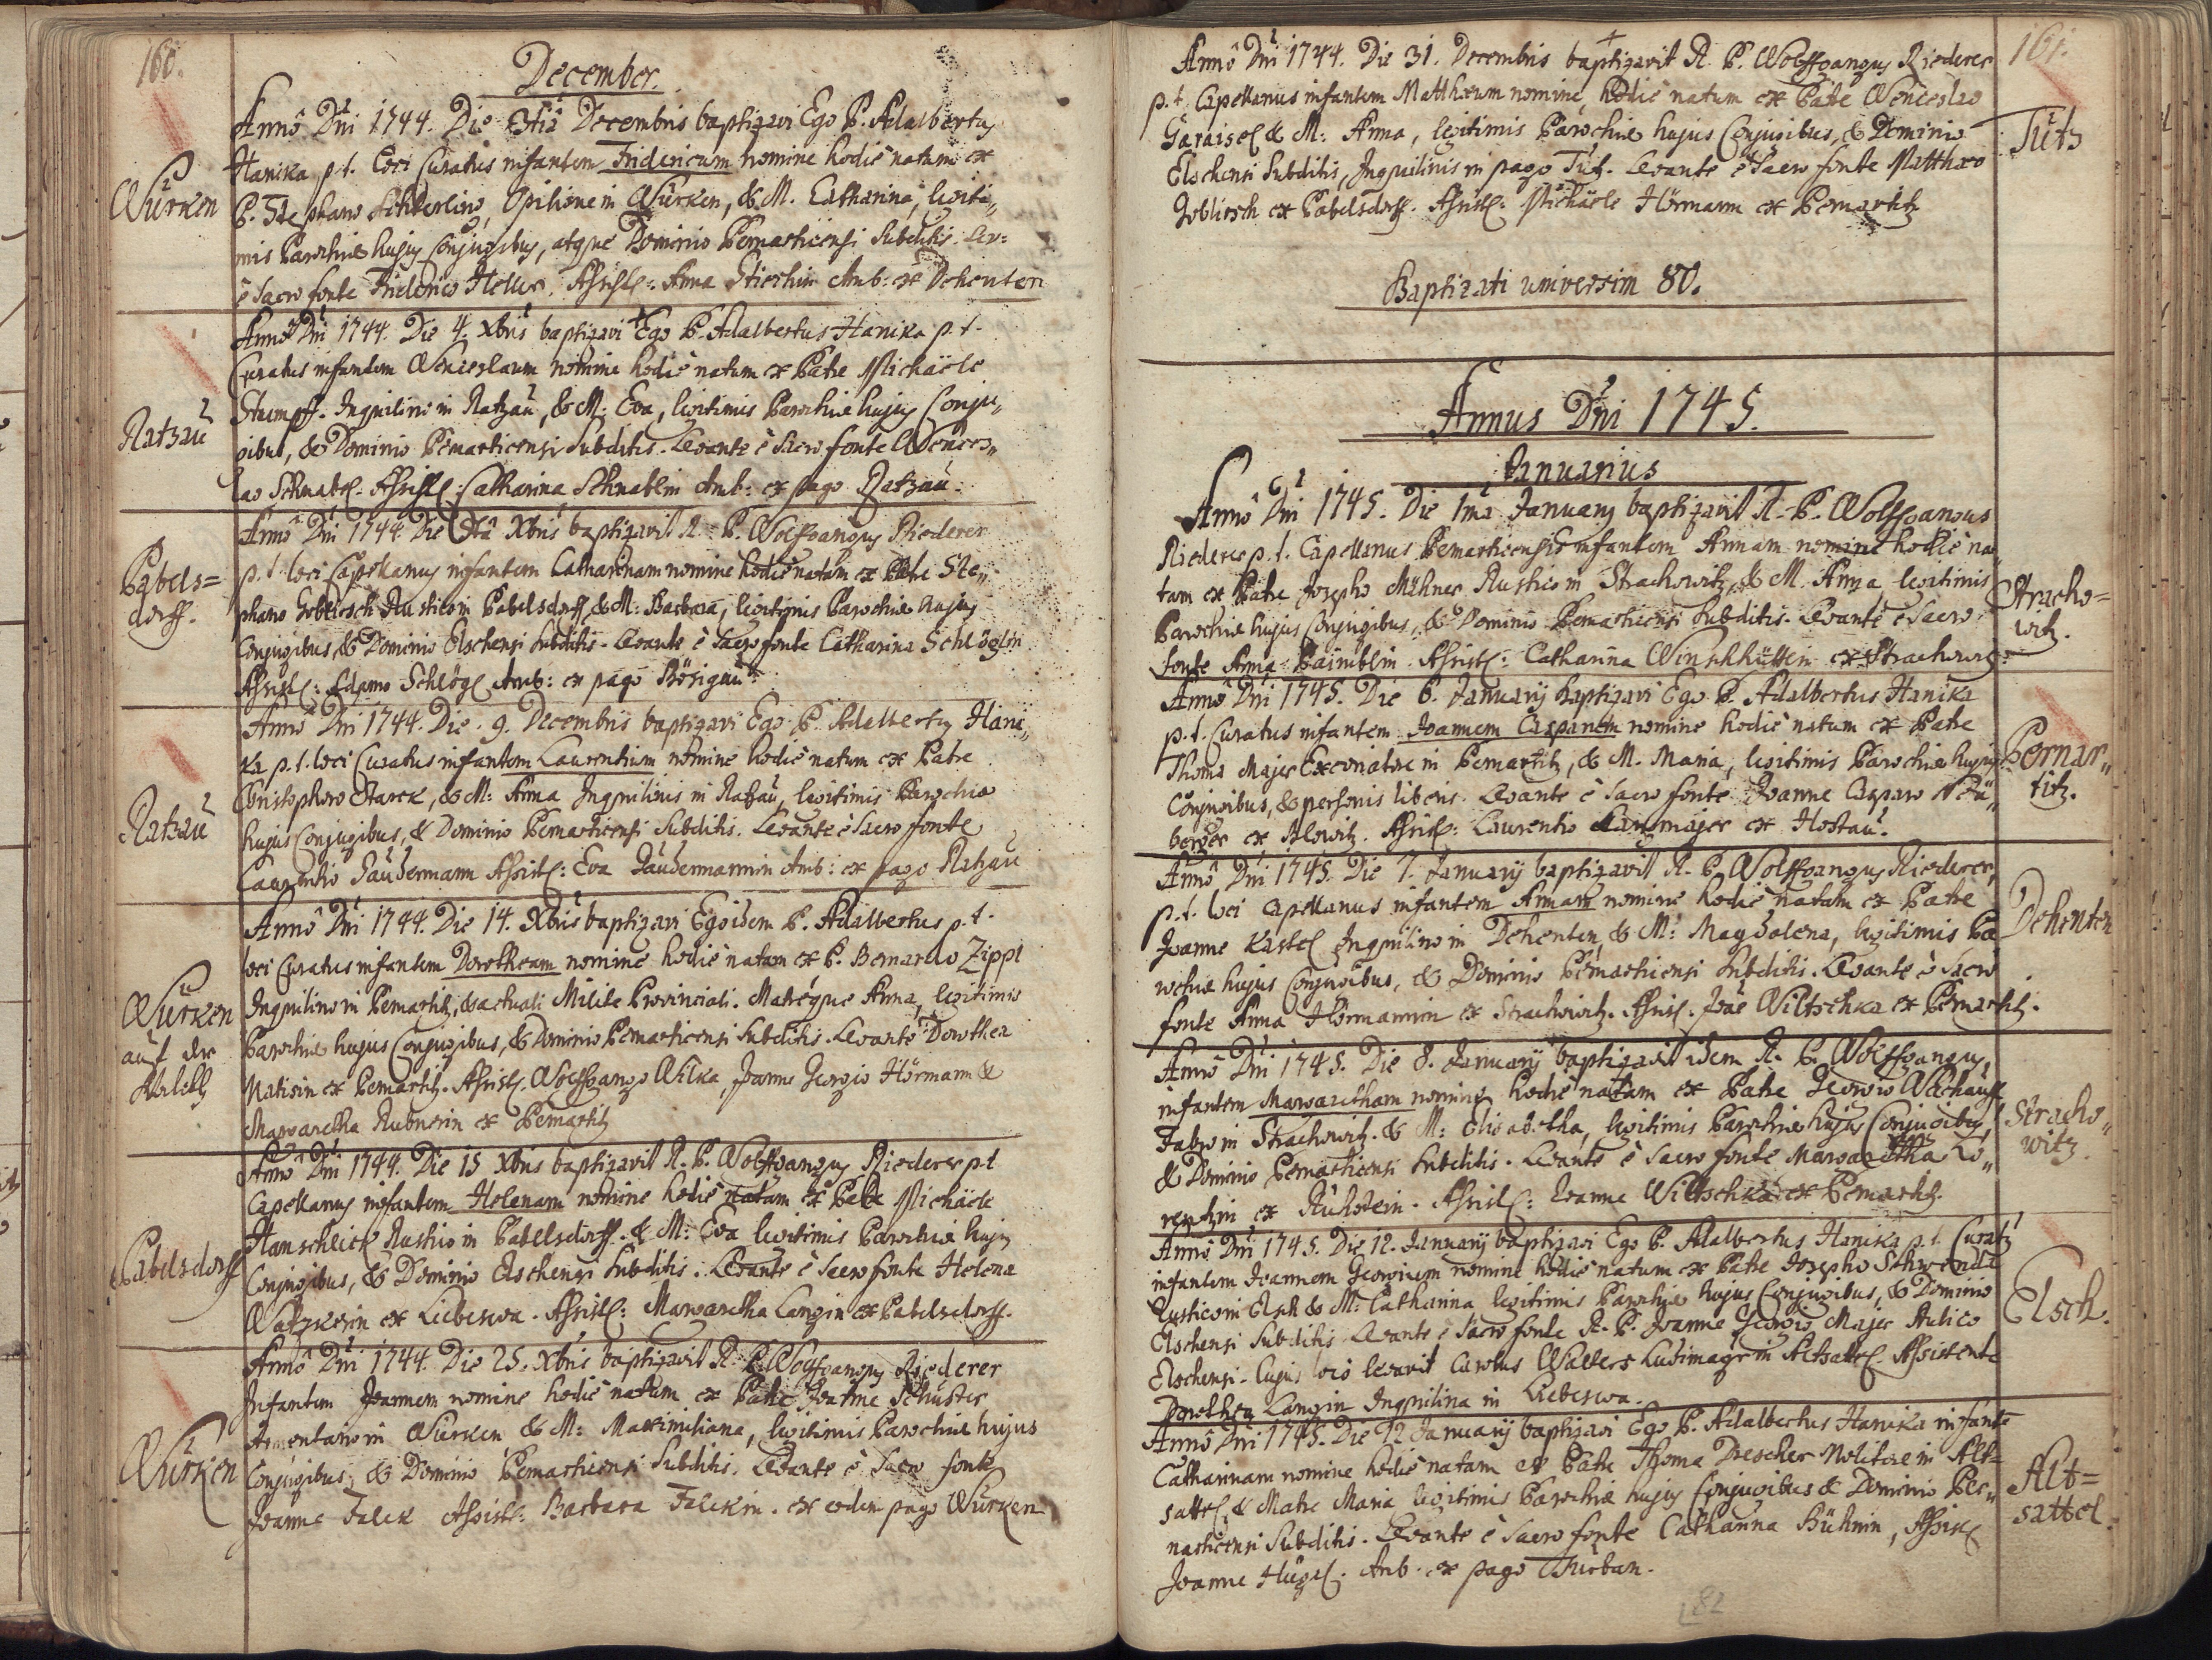 160.
December.
Würken
Annô Dni 1744. Die 3tiâ Decembris baptizavi Ego P. Adalbertus
Hanika p. t. Loci Curatus infantem Fridericum nomine hodiè natum ex
P. Stephano Opilione in Würken, & M. Catharina, legiti„
mis Parochiae hujus Conjugibus, atque Dominio Pernarticensi Subditis. Lev:
è Sacro fonte Friderico Heller. Assist: Anna Amb: ex Dehenten
Ratzau
Annô Dni 1744. Die 4. Xbris baptizavi Ego P. Adalbertus Hanika p. t.
Curatus infantem Wenceslaum nomine hodiè natum ex Patre Michäele
Stumpff. Inquilino in Ratzau, & M. Eva, legitimis Parochiae hujus Conju„
gibus, & Dominio Pernarticensi Subditis. Levante è Sacro fonte Wences„
lao Schnabel. Assist: Catharina Schnablin Amb: ex pago Ratzau.
Pabels=
dorff.
Annô Dni 1744. Die Xbris baptizavit R. P. Wolffgangus Riederer
p. t. loci Capellanus infantem Catharinam nomine hodiè natam ex Patre Ste„
phano Rustico in Pabelsdorff & M: Barbara, legitimis Parochiae hujus
Conjugibus, & Dominio Elschensi Subditis. Levante è Sacro fonte Catharina Schlöglin
Assist: Adamo Schlögl Amb: ex pago Bösigau.
Ratzau
Annô Dni 1744. Die 9. Decembris baptizavi Ego P. Adalbertus Hani„
ka p. t. loci Curatus infantem Laurentium nomine hodiè natum ex Patre
Christophoro Starck, & M: Anna Inquilinis in Ratzau, legitimis Parochiae
hujus Conjugibus, & Dominio Pernarticensi Subditis. Levante è Sacro fonte
Laurentio Daudermann Assist: Eva Daudermannin Amb: ex pago Ratzau
Würken
auf der
Annô Dni 1744. Die 14. Xbris baptizavi Ego idem P. Adalbertus p. t.
loci Curatus infantem Dorotheam nomine hodiè natam ex P. Bernardo Zippl
Inquilino in Pernartitz, & actuali Milite Provinciali. Matréque Anna, legitimis
Parochiae hujus Conjugibus, & Dominio Pernarticensi Subditis. Levante Dorothea
ex Pernartitz. Assist. Wolffgango Wilka, Joanne Georgio Hörmann &
Margaretha Rubnerin ex Pernartitz
Pabelsdorff
Annô Dni 1744. Die 15 Xbris baptizavit R. P. Wolffgangus Riederer p. t
Capellanus infantem Helenam nomine hodiè natam ex Patre Michäele
Hamschlick Rustico in Pabelsdorff. & M: Eva legitimis Parochiae hujus
Conjugibus, & Dominio Elschensi Subditis. Levante è Sacro fonte Helena
Watzkerin ex Liebeswa. Assist: Margaretha Langin ex Pabelsdorff.
Würken
Annô Dni 1744. Die 25. Xbris baptizavit R. P. Wolffgangus Riederer
Infantem Joannem nomine hodiè natum ex Patre Joanne Schuster
Armentario in Würken & M: Maximiliana, legitimis Parochiae hujus
Conjugibus, & Dominio Pernarticensi Subditis. Levante è Sacro fonte
Joanne Falck Assist: Barbara Falckin. ex eodem pago Würken
161.
Annô Dni 1744. Die 31. Decembris baptizavit R. P. Wolffgangus Riederer
p. t. Capellanus infantem Matthaeum nomine, hodiè natum ex Patre Wenceslao
Garaisel & M: Anna, legitimis Parochiae hujus Conjugibus, & Dominio
Elschensi Subditis, Inquilinis in pago Tutz. Levante è Sacro fonte Matthaeo
ex Pabelsdorff. Assist: Michäele Hörmann ex Pernartitz
Tutz
Baptizati universim 80.
Annus Dni 1745.
Januarius
Annô Dni 1745. Die 1ma Januarÿ baptizavit R. P. Wolffgangus
Riederer p. t. Capellanus Pernarticensis infantem Annam nomine hodiè na„
tam ex Patre Josepho Mähner Rustico in Strachowitz, & M. Anna, legitimis
Parochiae hujus Conjugibus, & Dominio Pernarticensi Subditis. Levante è Sacro
fonte Anna Paimblin. Assist: Catharina ex Strachowitz.
Stracho=
witz.
Annô Dni 1745. Die 6. Januarÿ baptizavi Ego P. Adalbertus Hanika
p. t. Curatus infantem Joannem Casparum nomine hodiè natum ex Patre
Thoma Majer in Pernartitz, & M. Maria, legitimis Parochiae hujus
Conjugibus, & personis liberis. Levante è Sacro fonte Joanne Casparo
berger ex Assist: Laurentio ex Hostau.
Pernar„
titz.
Annô Dni 1745. Die 7. Januarÿ baptizavit R. P. Wolffgangus Riederer,
p. t. loci Capellanus infantem Annam nomine hodiè natam ex Patre
Joanne Kastel Inquilino in Dehenten, & M: Magdalena, legitimis Pa
rochiae hujus Conjugibus, & Dominio Pernarticensi Subditis. Levante è Sacro
fonte Anna Hörmannin ex Strachowitz. Assist. Joäe Wiltschka ex Pernartitz.
Dehenten
Annô Dni 1745. Die 8. Januarÿ baptizavit idem R. P. Wolffgangus
infantem Margaretham nomine hodiè natam ex Patre Georgio
Fabro in Strachowitz. & M: Elisabetha, legitimis Parochiae hujus Conjugibus,
& Dominio Pernarticensi Subditis. Levante è Sacro fonte Margaretha Lo„
rentzin ex Ruhstein. Assist: Joanne Wiltschka ex Pernartitz.
Stracho„
witz.
Annô Dni 1745. Die 12. Januarÿ baptizavi Ego P. Adalbertus Hanika p. t. Curatus
infantem Joannem Georgium nomine hodiè natum ex Patre Josepho Schwenda
Rustico in Elsch & M: Catharina legitimis Parochiae hujus Conjugibus, & Dominio
Elschensi Subditis. Levante è Sacro fonte R. P. Joanne Georgio Majer Aulico
Elschensi. Cujus loco levavit Carolus Walters Ludimagr in Altsattel. Assistente
Dorothea Langin Inquilina in Liebeswa.
Elsch.
Annô Dni 1745. Die 12 Januarÿ baptizavi Ego P. Adalbertus Hanika infante
Catharinam nomine hodiè natam ex Patre Thoma Drescher Molitore in Alt=
sattel, & Matre Maria legitimis Parochiae hujus Conjugibus & Dominio Per„
narticensi Subditis. Levante è Sacro fonte Catharina Bühnin, Assist
Joanne Hügel. Amb. ex pago Turban.
Alt=
sattel
82